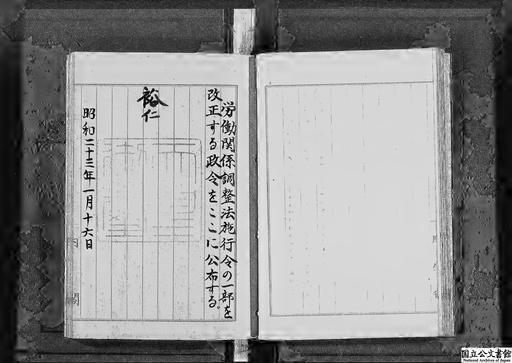 労働関係調整法施行令の一部を
改正する政令をここに公布する
裕仁
昭和二十三年一月十六日
内閣
国立公文書館
National Archives of Japan